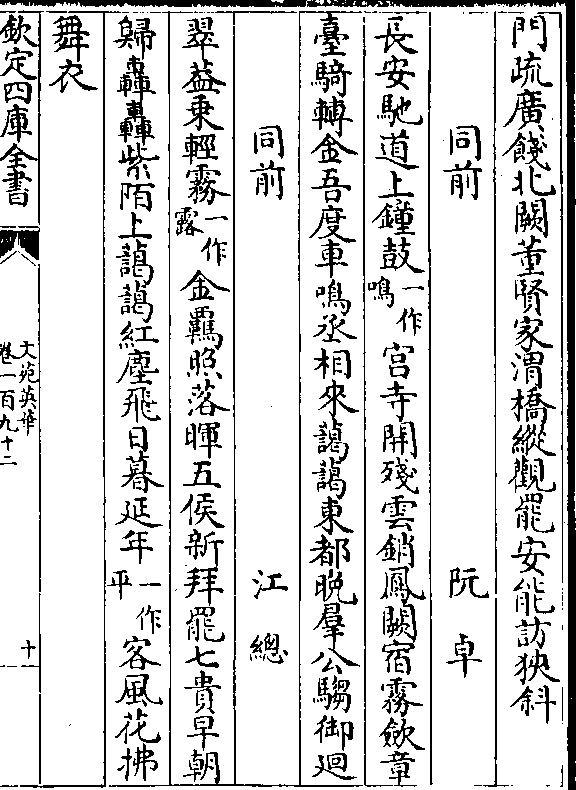 門疏廣餞北闕董賢家渭橋縱觀罷安能訪狹斜
同前 阮卓
長安馳道上鐘鼓一作鳴宮寺開殘雲銷鳳闕宿霧歛章
臺騎轉金吾度車鳴丞相來藹藹東都晩羣公騶御迴
同前 江總
翠葢乗輕霧一作露金羈照落暉五侯新拜罷七貴早朝
歸轟轟紫陌上藹藹紅塵飛日暮延年一作平客風花拂
舞衣
欽定四庫全書
文苑英華
卷一百九十二
十